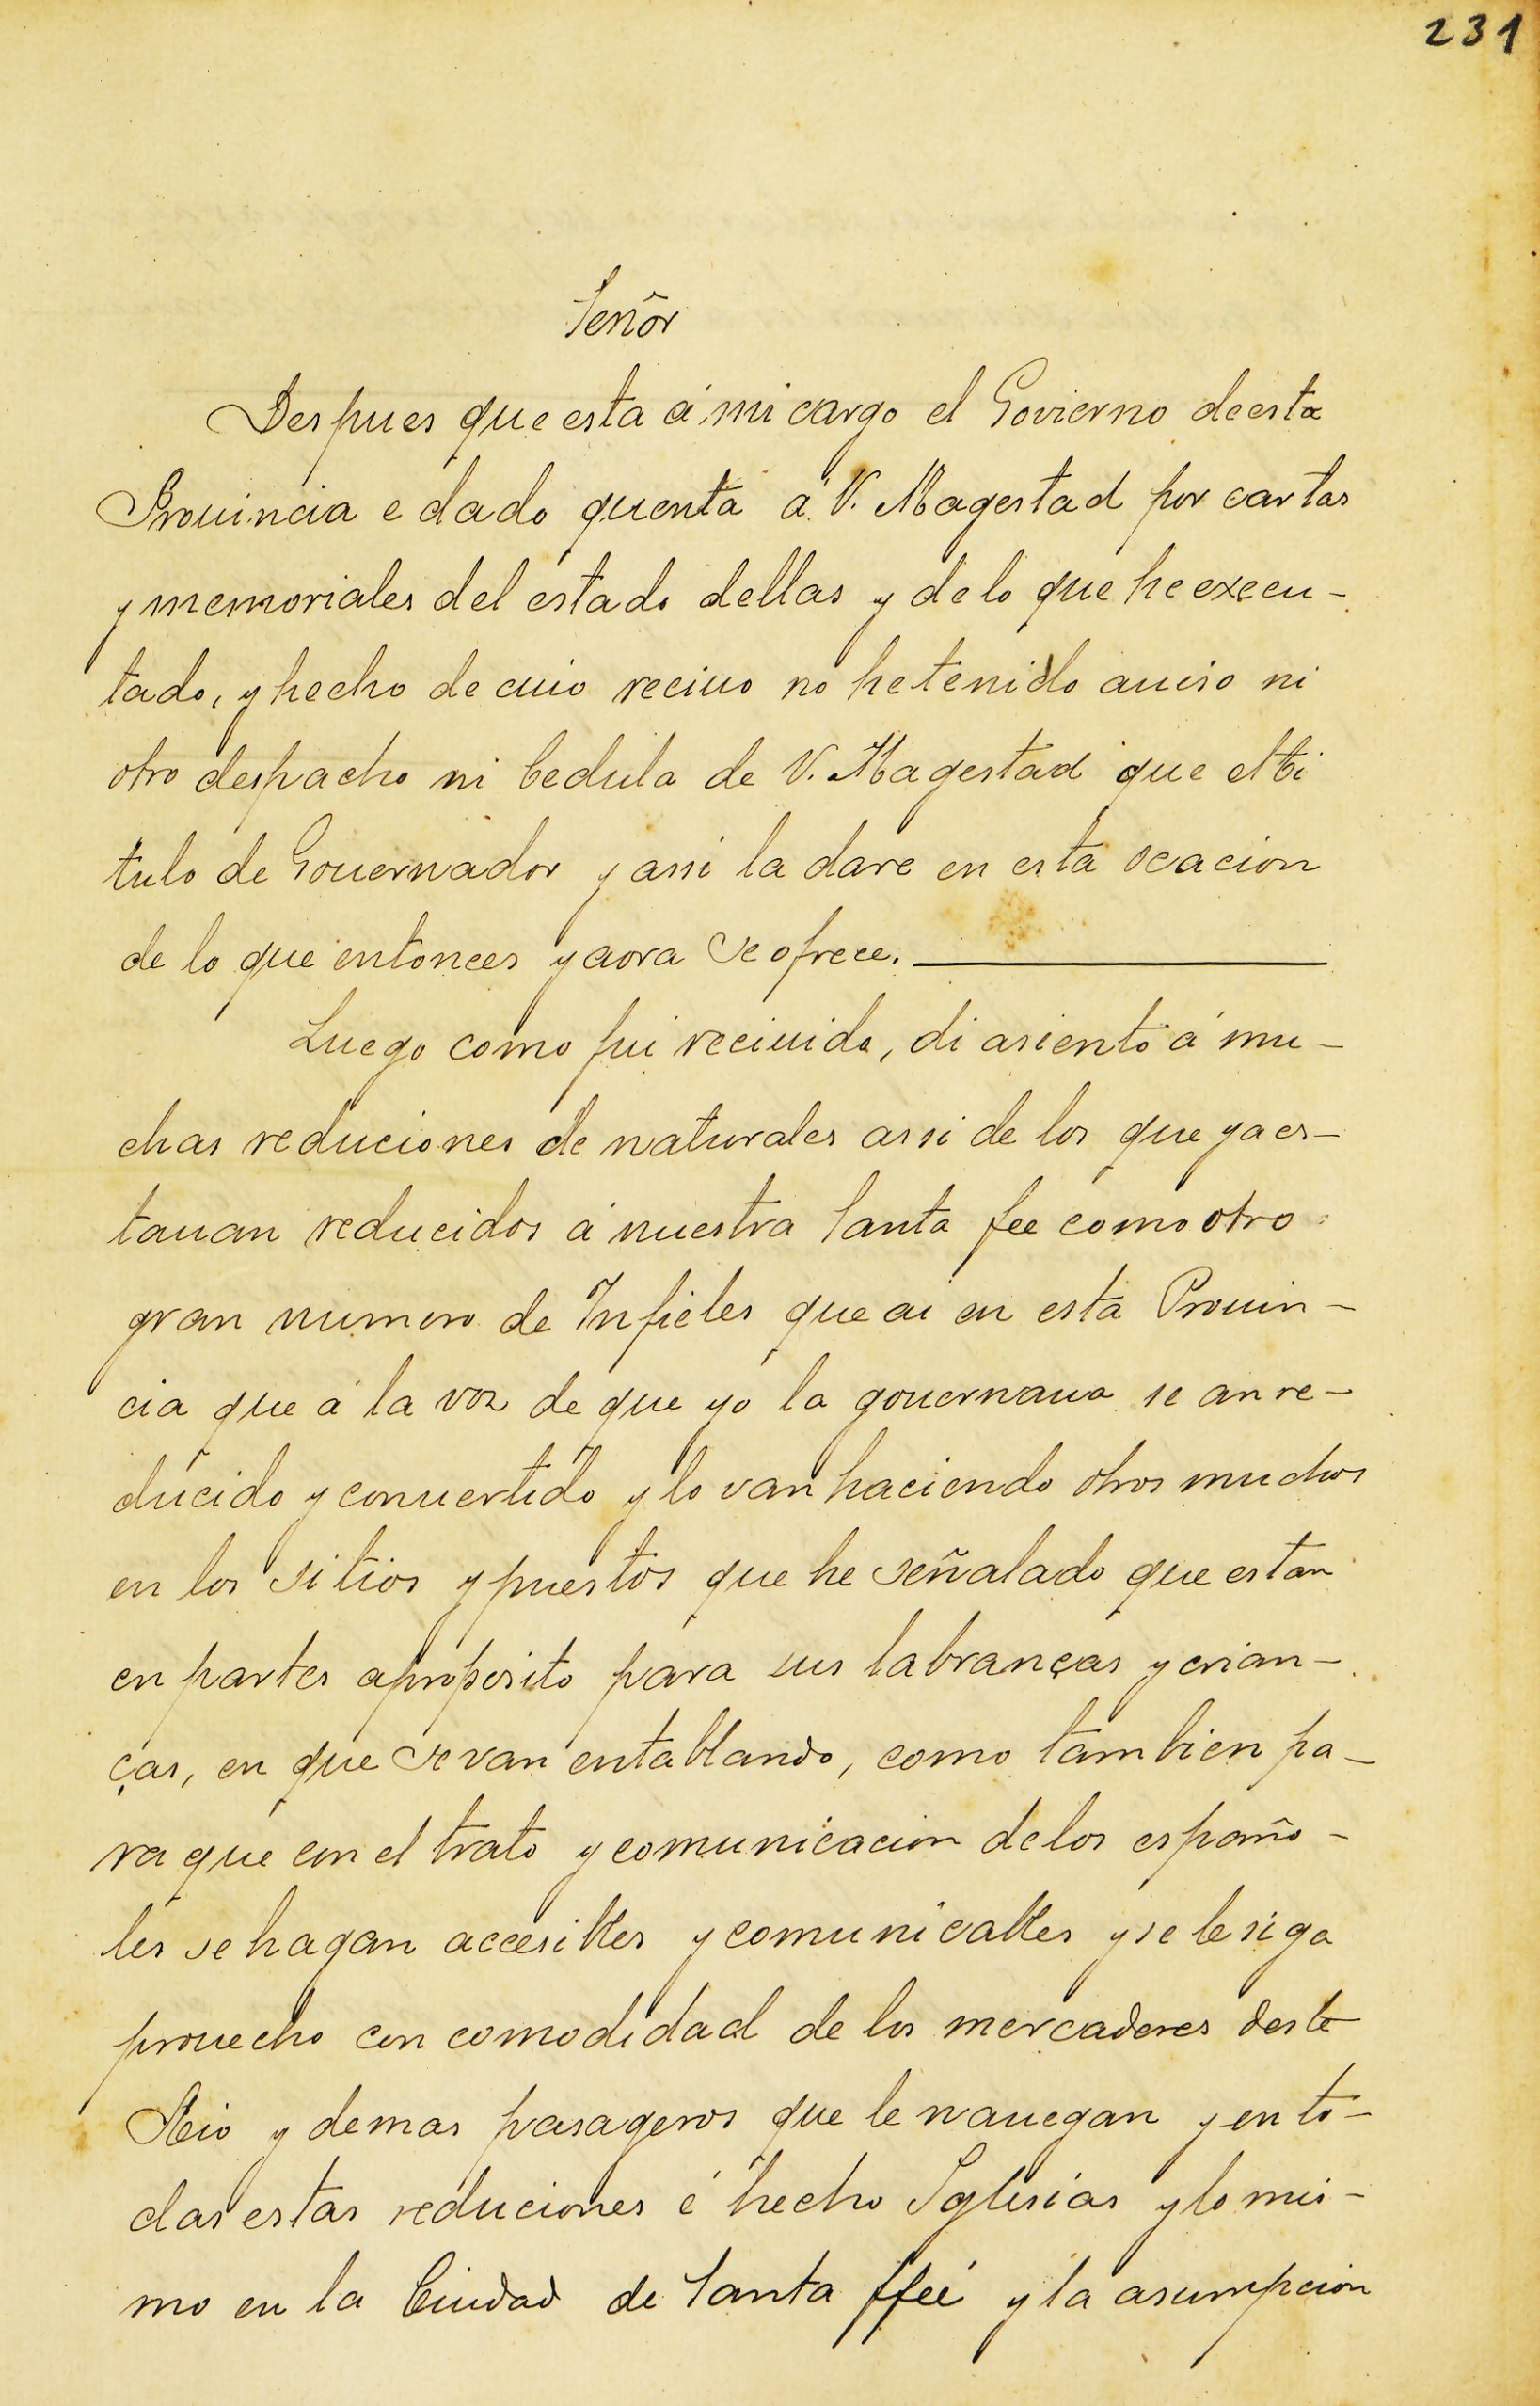 231
Señor
Despues que esta á mi cargo el Govierno de esta
Prouincia e dado quenta a V. Magestad por cartas
y memoriales del estado dellas y de lo que he execu-
tado, y hecho de cuio reciuo no he tenido auiso ni
otro despacho ni Cedula de V. Magestad que el ti
tulo de Gouernador y assi la dare en esta ocacion
de lo que entonces y aora se ofrece.
Luego como fui reciuido, di asiento á mu-
chas reduciones de naturales assi de los que ya es-
tauan reducidos á nuestra Santa fee como otro
gran numero de Infieles que ai en esta Prouin-
cia que á la voz de que yo la gouernaua se an re-
ducido y conuertido y lo van haciendo otros muchos
en los sitios y puestos que he señalado que estan
en partes aproposito para sus labranças y crian-
ças, en que se van entablando, como tambien pa-
ra que con el trato y comunicacion de los españo-
les se hagan accesibles y comunicables y se le siga
prouecho con comodidad de los mercaderes deste
Rio y demas pasageros que le nauegan y en to-
das estas reduciones é hecho Iglesias y lo mis-
mo en la Ciudad de Santa ffeé y la asumpcion